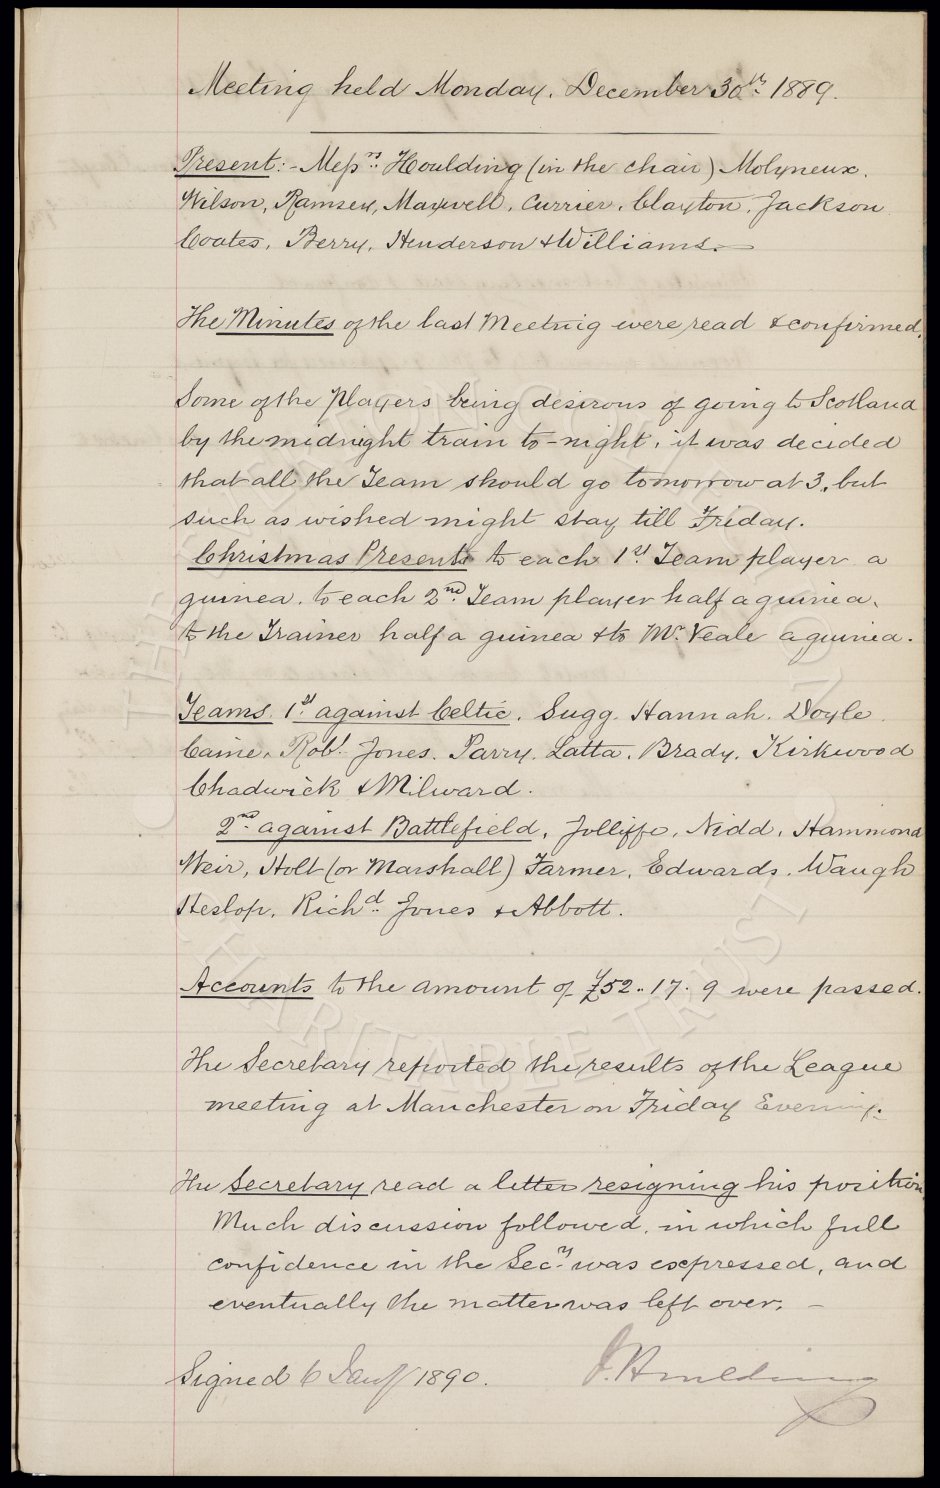 Meeting held Monday. December 30th 1889.
Present:- Messrs. Houlding (in the chair) Molyneux.
Wilson, Ramsey, Maxwell, Currier, Clayton, Jackson
Coates, Berry, Henderson & Williams.—
The Minutes of the last Meeting were read & confirmed.
Some of the Players being desirous of going to Scotland
by the midnight train to-night, it was decided
that all the Team should go tomorrow at 3, but
such as wished might stay till Friday.
Christmas Presents to each 1st Team player a
guinea. to each 2nd Team player half a guinea.
to the Trainer half a guinea & to Mr. Veale a guinea.
Teams. 1st against Celtic. Sugg. Hannah. Doyle.
Caine, Robt. Jones. Parry. Latta. Brady. Kirkwood
Chadwick & Milward.
2nd against Battlefield, Jolliffe, Nidd, Hammond
Weir, Holt (or Marshall) Farmer, Edwards. Waugh
Heslop, Richd. Jones & Abbott.
Accounts to the amount of £52. 17. 9 were passed.
The Secretary reported the results of the League
meeting at Manchester on Friday Evening.
The Secretary read a letter resigning his position.
Much discussion followed, in which full
confidence in the Secy. was expressed, and
eventually the matter was left over. —
Signed 6 Jany 1890. J. Houlding
THE EVERTON COLLECTION
CHARITABLE TRUST